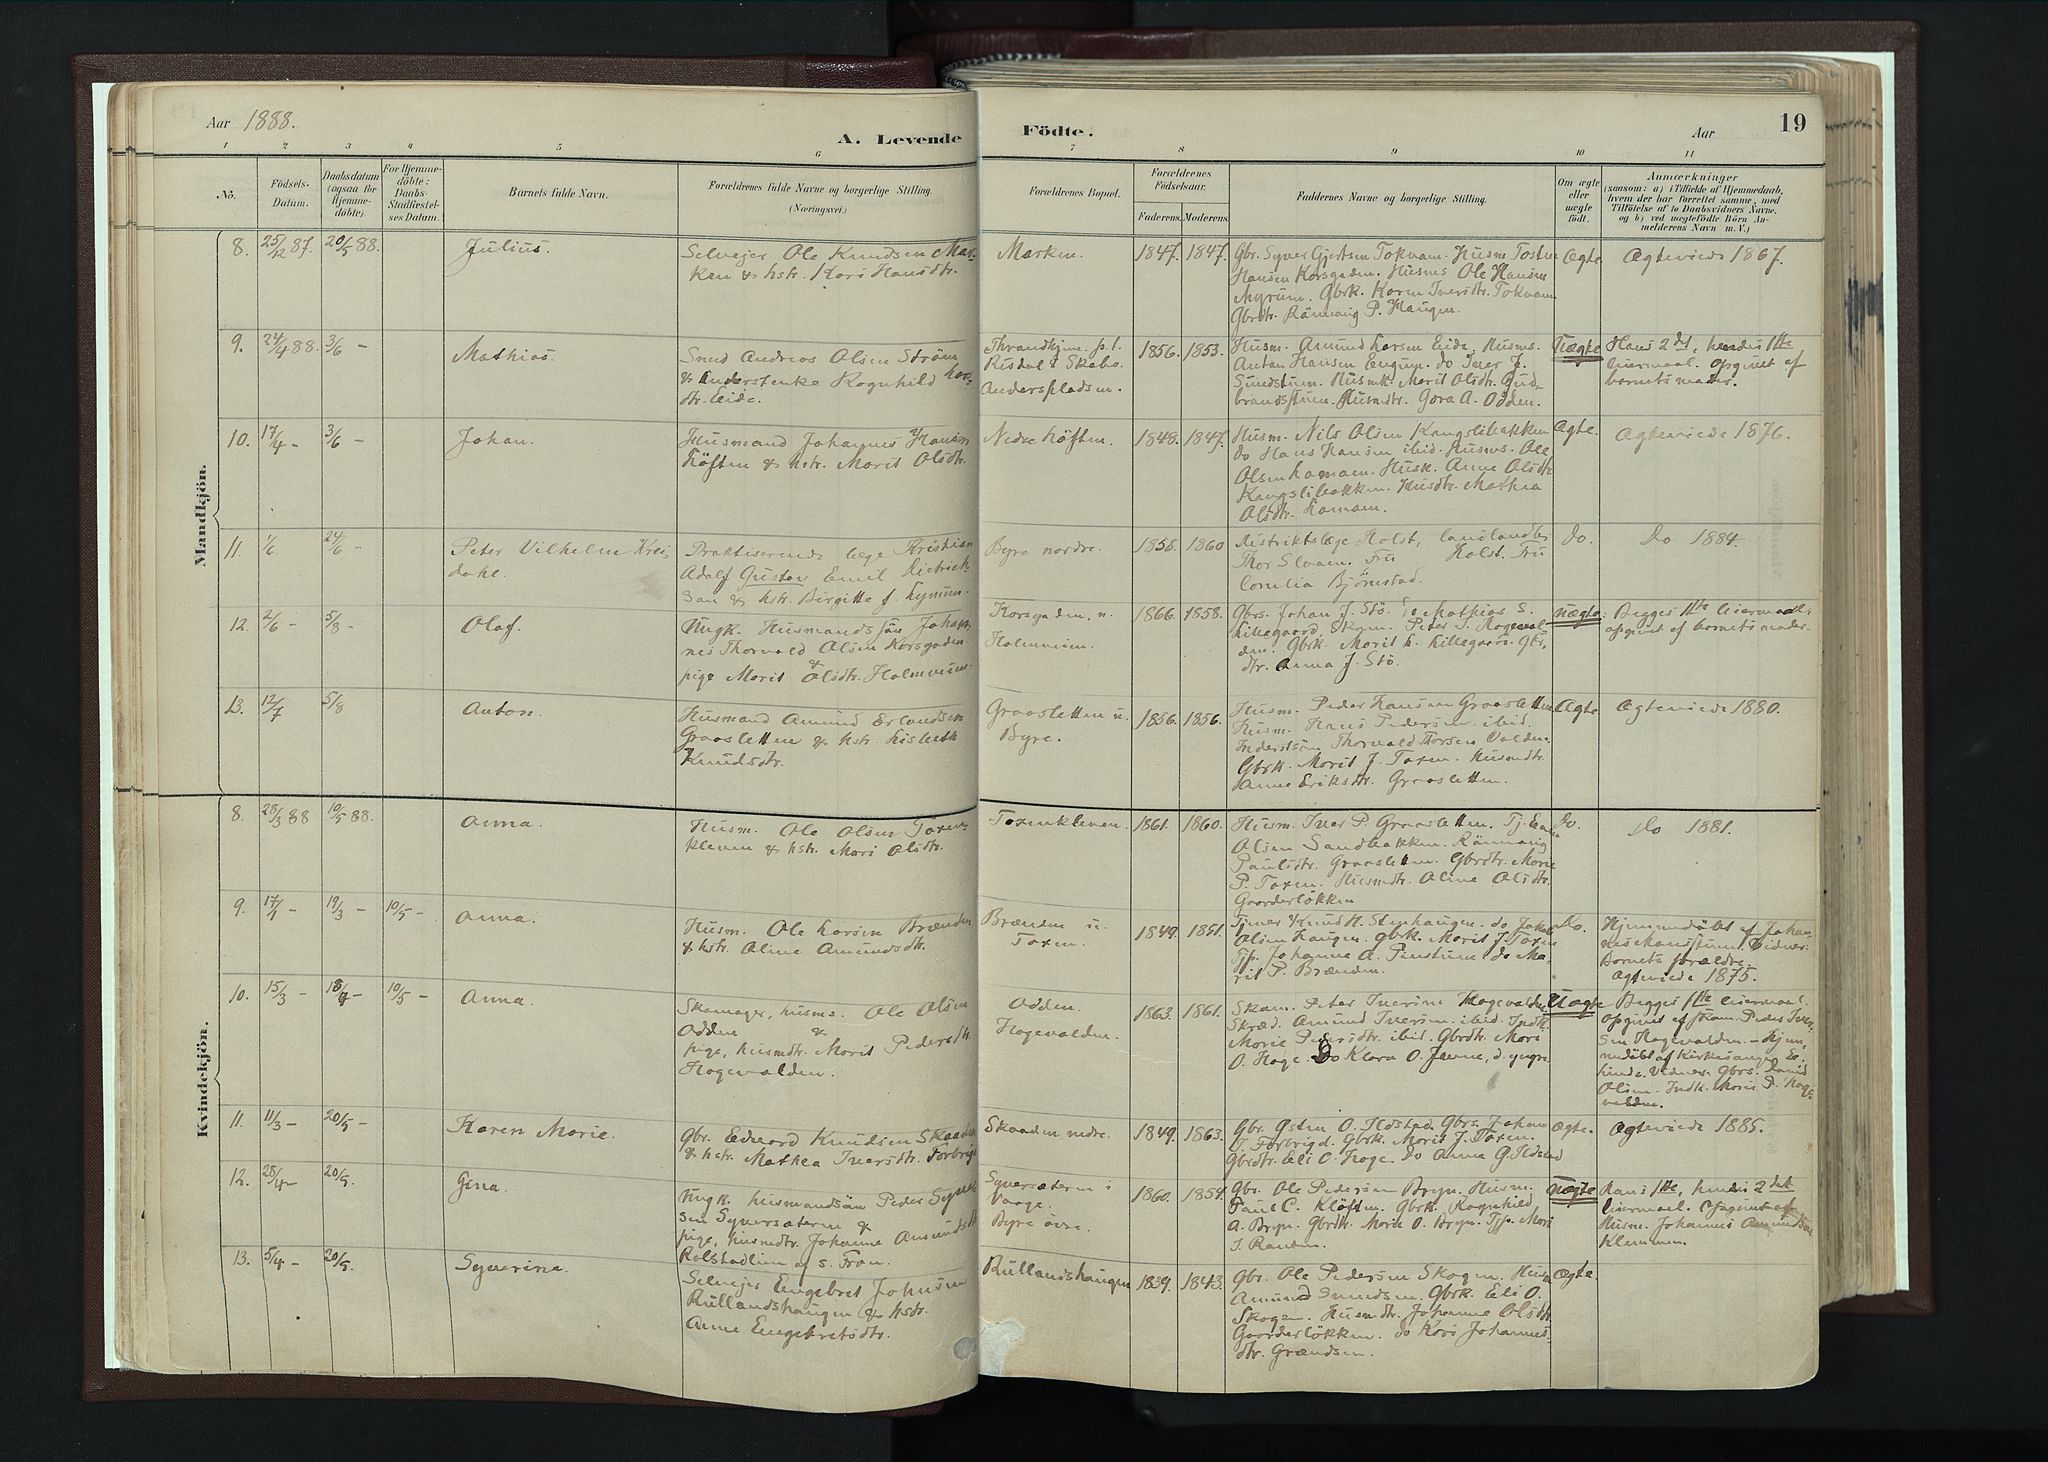 Aar 1888.
A. Levende
Födte.
Aar
19
1 2 3 4 5 6 7 8 9 10 11
No.
Födsels-
Datum.
Daabsdatum
(ogsaa for
Hjemme-
döbte).
For Hjemme-
döbte:
Daabs-
Stadfæstel-
ses Datum.
Barnets fulde Navn.
Forældrenes fulde Navne og borgerlige Stilling.
(Næringsvei.)
Forældrenes Bopæl.
Forældrenes
Födselsaar.
Faderens. Moderens.
Faddernes Navne og borgerlige Stilling.
Om ægte
eller
uægte
födt.
Anmærkninger
(saasom: a) i Tilfælde af Hjemmedaab,
hvem der har forrettet samme, med
Tilföielse af to Daabsvidners Navne,
og b) ved uægtefödte Börn An-
melderens Navn m. V.)
Mandkjön.
8. 25/12 87. 20/5 88.
Julius.
Selveier Ole Knudsen Mar-
ken & hstr. Kari Hansdtr.
Marken.
1847. 1847.
Gbr. Syver Gjertsen Tokvam. Husm. Tosten
Hansen Korsgaden. Husms. Ole Hansen
Myrum. Gbrk. Karen Iversdtr. Tokvam
Gbrdtr. Rönnaug P. Haugen.
Ægte
Ægteviede 1867.
9. 24/4 88. 3/6 -
Mathias.
Smed Andreas Olsen Ström
& Enderstenke Ragnhild Lars-
dtr. Eide.
Thrandhjem, p.t.
Risdal i Skabo.
Anderspladsen.
1856. 1853.
Husm. Amund Larsen Eide. Husms.
Anton Hansen Engum. do Iver J.
Sundstuen. Husmk. Marit Olsdtr. Gud-
brandsstuen. Husmdtr. Gora A. Odden.
Uægte
Hans 2det, hendes 1ste
leiermaal. Opgivet af
barnets moder.
10. 17/4 - 3/6 -
Johan.
Husmand Johannes Hansen
Löften & hstr. Marit Olsdtr.
Nedre Löften.
1848. 1847.
Husm. Nils Olsen Kangslibakken
do Hans Hansen ibid. Husms. Ole
Olsen Lamoen. Husk. Anne Olsdtr.
Kangslibakken. Husdtr. Mathea
Olsdtr. Lamoen.
Ægte.
Ægteviede 1876.
11. 1/6 24/6 -
Peter Vilhelm Krei-
dahl.
Praktiserende læge Kristian
Adolf Gustav Emil Dietrich-
son & hstr. Birgitte f. Lynum.
Byre nordre.
1858. 1860
Distriktslæge Holst, landhandler
Thor Slaaen. Fru Holst. Fru
Cornelia Bjørnstad.
Do.
Do 1884.
12. 2/6 - 5/8 -
Olaf.
Ungk. Husmandssön Johan-
nes Thorvald Olsen Korsgaden
&
pige Marit Olsdtr. Holmveien
Korsgaden, u.
Holmveien.
1866. 1858.
Gbrs. Johan J. Stö. Do Mathias S.
Lillegaard. Skom. Peter I. Hageval-
den. Gbrk. Marit L. Lillegaard. Gbr-
dtr. Anna J. Stö.
Uægte
Begges 1ste leiermaal
opgivet af barnets moder.
13. 12/7 5/8
Anton.
Husmand Amund Erlandsen
Graasletten & hstr. Lisbeth
Knudsdtr.
Graasletten u.
Byre.
1856. 1856.
Husm. Peder Hansen Graasletten
Husm. Hans Pedersen ibid.
Inderstsön Thorvald Thorsen Volden.
Gbrk. Marit J. Toxen. Husmdtr.
Anne Eriksdtr. Graasletten.
Ægte
Ægteviede 1880.
Kvindekjön.
8. 28/3 88 10/5 88.
Anna.
Husm. Ole Olsen Toxen-
kleven & hstr. Mari Olsdtr.
Toxenkleven.
1861. 1860.
Husm. Iver P. Graasletten. Tj.
Olsen Sandbakken. Rönnaug
Paulsdtr. Graasletten. Gbrdtr. Marie
P. Toxen. Husmdtr. Oline Olsdtr.
Gaarderlökken
Do.
Do 1881.
9. 17/1 - 19/3 - 10/5 -
Anna.
Husm. Ole Larsen Brænden
& hstr. Oline Amundsdtr.
Brænden u.
Toxen.
1849. 1851.
Tjener Knud H. Stenhaugen. do Jakob
Olsen Haugen. Gbrk. Marit J. Toxen
Tjp. Johanne A. do Ma-
rit P. Brænden.
Do.
Hjemmedöbt af Johan-
nes Vidner:
Barnets forældre.
Ægteviede 1875.
10. 15/3 - 18/4 - 10/5 -
Anna.
Skomager, husms. Ole Olsen
Odden &
pige, husmdtr. Marit Pedersdtr.
Hagevolden.
Odden.
Hagevolden.
1863. 1861.
Skom. Peter Iversen Hagevolden
Skræd. Amund Iversen ibid. Indk.
Marie Pedersdtr. ibid. Gbrdtr. Mari
O. Hage. Do Klara O. d. yngre
Uægte
Begges 1ste leiermaal.
Opgivet af skom. Peder Iver-
sen Hagevolden. - Hjem-
medöbt af Kirkesanger
Vidner. Gbrs. David
Olsen. Indk. Marie P. Hage-
volden.
11. 11/3 - 20/5 -
Karen Marie.
Gbr. Edvard Knudsen Skaaden
& hstr. Mathea Iversdtr. Forbrigd
Skaaden nedre.
1849. 1863.
Gbr. Østen O. Ildstad. Gbrs. Johan
I. Forbrigd. Gbrk. Marit J. Toxen.
Gbrdtr. Eli O. Hage. Do Anne G. Ildstad
Ægte.
Ægteviede 1885.
12. 28/4 - 20/5.
Gina.
Ungk. husmandsön Peder Syver-
sen Syversæteren &
pige, husmdtr. Johanne Amundsdtr.
Rolstadlien af s. Fron.
Syversæteren i
Vaage.
Byre övre.
1860. 1854.
Gbr. Ole Pedersen Bryn. Husm.
Paul C. Klöften. Gbrk. Ragnhild
A. Bryn. Gbrdtr. Marit O. Bryn. Tjp. Mari
J. Rauten.
Uægte
Hans 1ste, hendes 2det
leiermaal. Opgivet af
Husm. Johannes Amundsen
Klemmen.
13. 5/4 - 20/5.
Syverine.
Selveier Engebret Johnsen
Rullandshaugen & hstr.
Anne Engebretsdtr.
Rullandshaugen
1839. 1843.
Gbr. Ole Pedersen Skogen. Husm.
Amund Gbrk. Eli O.
Skogen. Husmdtr. Johanne Olsdtr.
Gaarderlökken. do Kari Johannes-
dtr. Grændsen.
Ægte.